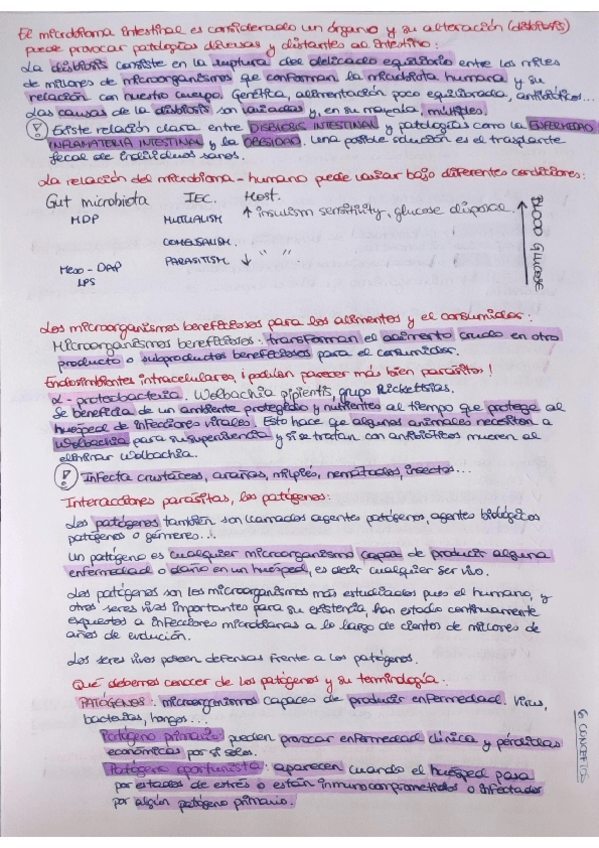 El microbioma intestinal es considerado un órgano y su alteración (disbiosis)
puede provocar patologías diversas y distantes al intestino:
La disbiosis consiste en la ruptura del delicado equilibrio entre los miles
de millones de microorganismos que conforman la microbiota humana y su
relación con nuestro cuerpo. Genética, alimentación poco equilibrada, antibióticos...
Las causas de la disbiosis son variadas y, en su mayoría, múltiples.
! Existe relación clara entre DISBIOSIS INTESTINAL y patologías como la ENFERMEDAD
INFLAMATORIA INTESTINAL y la OBESIDAD. Una posible solución es el trasplante
fecal de individuos sanos.
La relación del microbioma-humano puede variar bajo diferentes condiciones:
Gut microbiota IEC. Host.
MDP MUTUALISM ↑ insulism sensitivity, glucose disposal.
COMENSALISM.
Meso-DAP PARASITISM ↓ " " ".
LPS
BLOOD GLUCOSE
Los microorganismos beneficiosos para los alimentos y el consumidor:
Microorganismos beneficiosos: transforman el alimento crudo en otro
producto o subproductos beneficiosos para el consumidor.
Endosimbiontes intracelulares, ¡podían parecer más bien parásitos!
α-proteobacteria. Wolbachia pipientis, grupo Rickettsias.
Se beneficia de un ambiente protegido y nutrientes al tiempo que protege al
huésped de infecciones virales. Esto hace que algunos animales necesiten a
Wolbachia para su supervivencia y si se tratan con antibióticos mueren al
eliminar Wolbachia.
! Infecta crustáceos, arañas, milpiés, nemátodos, insectos...
Interacciones parásitas, los patógenos:
Los patógenos también son llamados agentes patógenos, agentes biológicos
patógenos o gérmenes...
Un patógeno es cualquier microorganismo capaz de producir alguna
enfermedad o daño en un huésped, es decir cualquier ser vivo.
Los patógenos son los microorganismos más estudiados pues el humano, y
otros seres vivos importantes para su existencia, han estado continuamente
expuestos a infecciones microbianas a lo largo de cientos de millones de
años de evolución.
Los seres vivos poseen defensas frente a los patógenos.
Qué debemos conocer de los patógenos y su terminología:
PATÓGENOS: microorganismos capaces de producir enfermedad. Virus,
bacterias, hongos...
Patógeno primario: pueden provocar enfermedad clínica y pérdidas
económicas por sí solos.
Patógeno oportunista: aparecen cuando el huésped pasa
por estados de estrés o están inmunocomprometidos o infectados
por algún patógeno primario.
6 CONCEPTOS